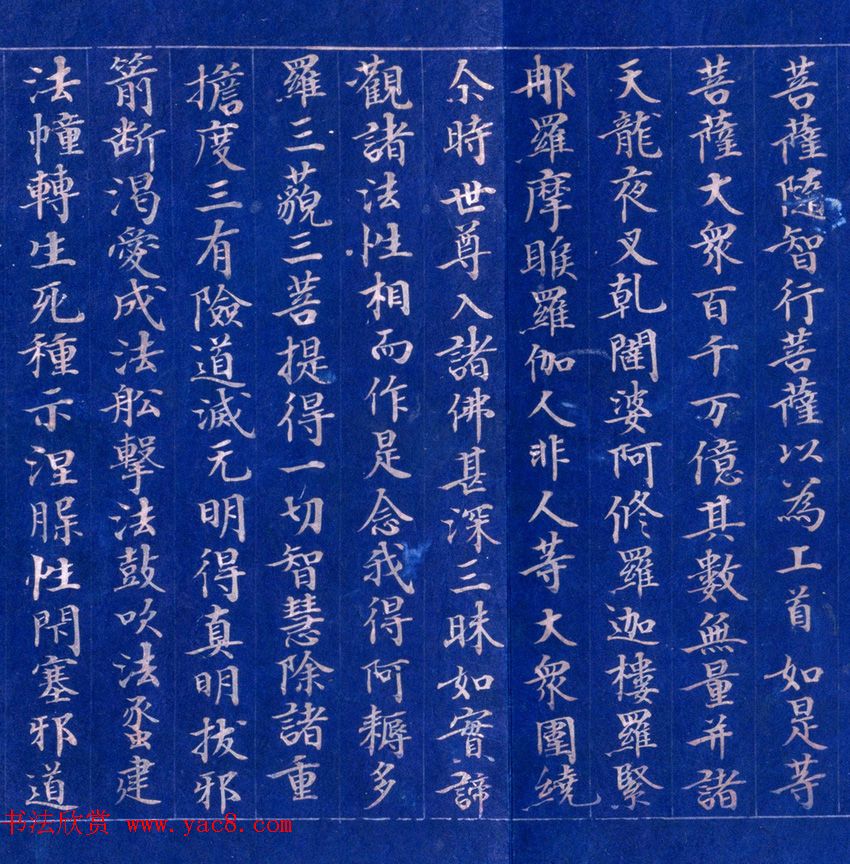 菩薩隨智行菩薩以為上首如是等
菩薩大衆百千万億其數無量并諸
天龍夜叉乹闥婆阿修羅迦樓羅緊
那羅摩睺羅伽人非人等大衆圍繞
尒時世尊入諸佛甚深三昧如實諦
觀諸法性相而作是念我得阿耨多
羅三藐三菩提得一切智慧除諸重
擔度三有險道滅无明得真明拔邪
箭断渴愛成法舩擊法鼓吹法蠡建
法幢轉生死種示涅槃性閇塞邪道
书法欣赏 www.yac8.com